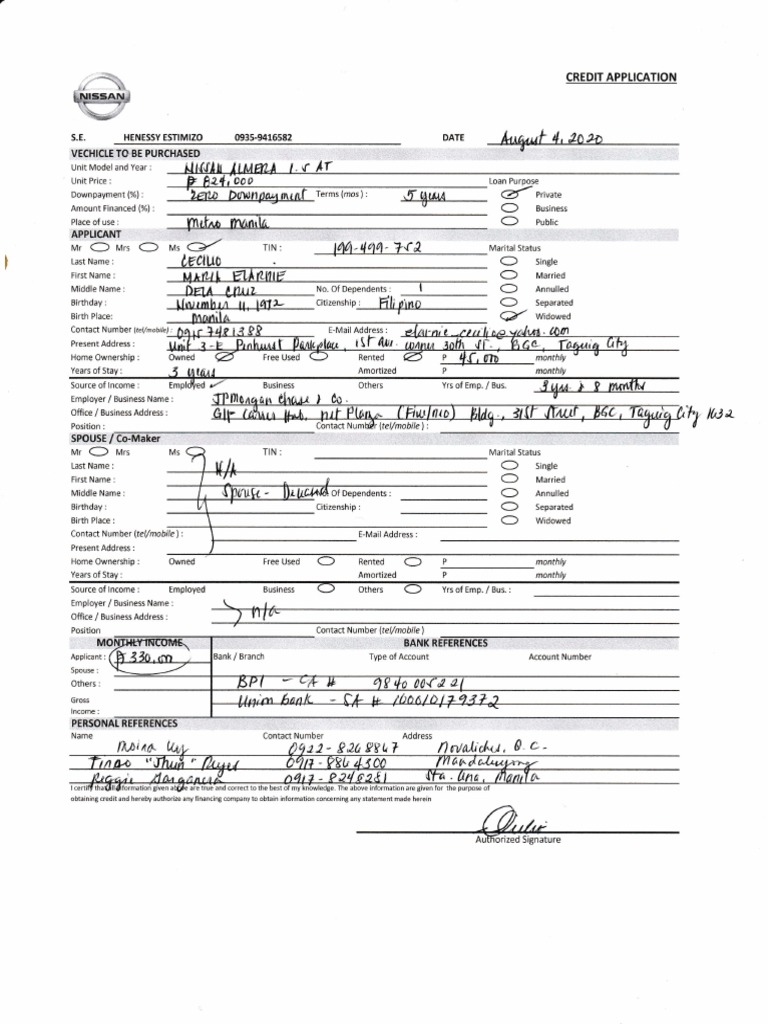 NISSAN
CREDIT APPLICATION
S.E. HENESSY ESTIMIZO 0935-9416582 DATE August 4, 2020
VECHICLE TO BE PURCHASED
Unit Model and Year : NISSAN ALMERA 1.5 AT
Unit Price : ₱ 824,000 Loan Purpose
Downpayment (%) : ZERO Downpayment Terms (mos) : 5 years Private
Amount Financed (%) : Business
Place of use : Metro Manila Public
APPLICANT
Mr Mrs Ms TIN : 199-499-752 Marital Status
Last Name : CECILIO Single
First Name : MARIA ELARNIE Married
Middle Name : DELA CRUZ No. Of Dependents : 1 Annulled
Birthday : November 11, 1972 Citizenship : Filipino Separated
Birth Place: Manila Widowed
Contact Number (tel/mobile) : 0915 7481388 E-Mail Address : elarnie_cecilio@yahoo.com
Present Address : Unit 3-E Pinhurst Parkplace, 1st Ave. corner 30th St., BGC, Taguig City
Home Ownership : Owned Free Used Rented P 45,000 monthly
Years of Stay : 3 years Amortized P monthly
Source of Income : Employed Business Others Yrs of Emp. / Bus. : 3 yrs & 8 months
Employer / Business Name : JPMorgan Chase & Co.
Office / Business Address : Net Plaza (Five/Neo) Bldg., 31st Street, BGC, Taguig City 1632
Position : Contact Number (tel/mobile) :
SPOUSE / Co-Maker
Mr Mrs Ms TIN : Marital Status
Last Name : N/A Single
First Name : Married
Middle Name : Spouse - Of Dependents : Annulled
Birthday : Citizenship : Separated
Birth Place : Widowed
Contact Number (tel/mobile) : E-Mail Address :
Present Address :
Home Ownership : Owned Free Used Rented P monthly
Years of Stay : Amortized P monthly
Source of Income : Employed Business Others Yrs of Emp. / Bus. :
Employer / Business Name :
Office / Business Address : n/a
Position Contact Number (tel/mobile )
MONTHLY INCOME BANK REFERENCES
Applicant : ₱ 330,000 Bank / Branch Type of Account Account Number
Spouse :
Others : BPI - CA # 9840 0052 21
Gross Income : Union bank - SA # 100610179372
PERSONAL REFERENCES
Name Contact Number Address
Uy 0922-8268867 Novaliches, Q.C.
"Jhun" Reyes 0917-8864300 Mandaluyong
Reggie 0917-8248281 Sta. Ana, Manila
I certify that all information given above are true and correct to the best of my knowledge. The above information are given for the purpose of
obtaining credit and hereby authorize any financing company to obtain information concerning any statement made herein
Authorized Signature